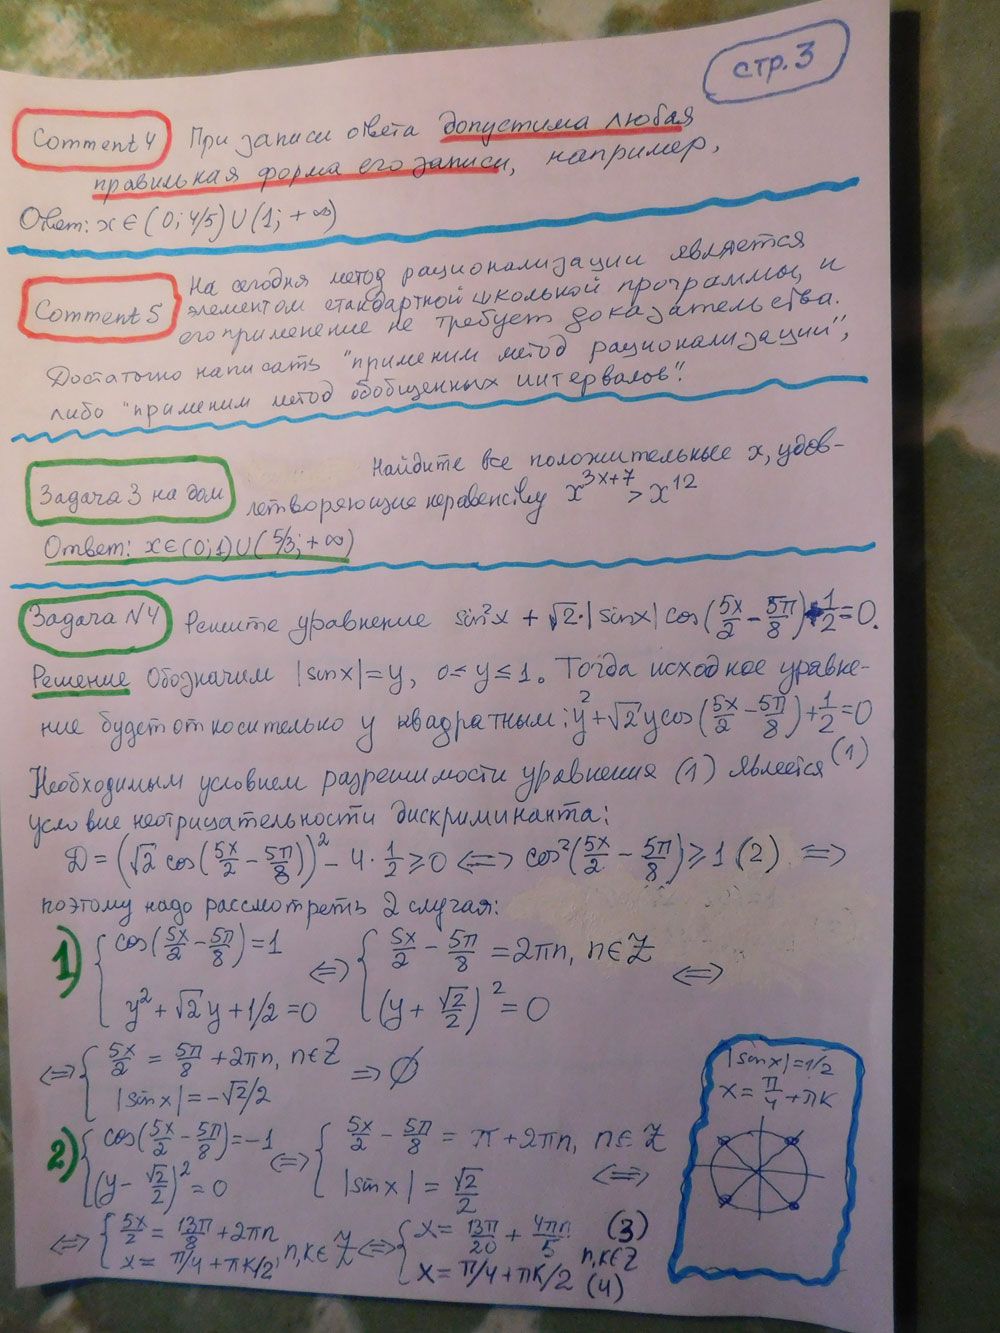 стр. 3
Comment 4 При записи ответа допустима любая
правильная форма его записи, например,
Ответ: x∈(0; 4/5)∪(1; +∞)
Comment 5 На сегодня метод рационализации является
элементом стандартной школьной программы, и
его применение не требует доказательства.
Достаточно написать "применим метод рационализации",
либо "применим метод обобщенных интервалов".
Задача 3 на дом Найдите все положительные x, удов-
летворяющие неравенству x^{3x+7} > x^{12}
Ответ: x∈(0; 1)∪(5/3; +∞)
Задача №4 Решите уравнение sin²x + √2·|sinx| cos(5x/2 − 5π/8) + 1/2 = 0.
Решение Обозначим |sinx| = y, 0 ≤ y ≤ 1. Тогда исходное уравне-
ние будет относительно y квадратным: y² + √2 y cos(5x/2 − 5π/8) + 1/2 = 0
(1)
Необходимым условием разрешимости уравнения (1) является
условие неотрицательности дискриминанта:
D = (√2 cos(5x/2 − 5π/8))² − 4 · 1/2 ≥ 0 ⇔ cos²(5x/2 − 5π/8) ≥ 1 (2) ⇒
поэтому надо рассмотреть 2 случая:
1) { cos(5x/2 − 5π/8) = 1 ⇔ { 5x/2 − 5π/8 = 2πn, n∈Z ⇔
y² + √2 y + 1/2 = 0 (y + √2/2)² = 0
⇔ { 5x/2 = 5π/8 + 2πn, n∈Z ⇒ ∅
|sinx| = −√2/2
2) { cos(5x/2 − 5π/8) = −1 ⇔ { 5x/2 − 5π/8 = π + 2πn, n∈Z ⇔
(y − √2/2)² = 0 |sinx| = √2/2
⇔ { 5x/2 = 13π/8 + 2πn n,k∈Z ⇔ { x = 13π/20 + 4πn/5 (3)
x = π/4 + πk/2 x = π/4 + πk/2 n,k∈Z (4)
|sinx| = 1/2
x = π/4 + πk